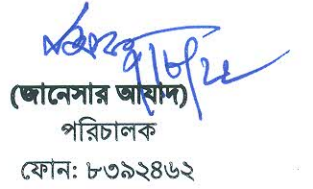 (জানেসার আযাদ)
পরিচালক
ফোন: ৮৩৯২৪৬২